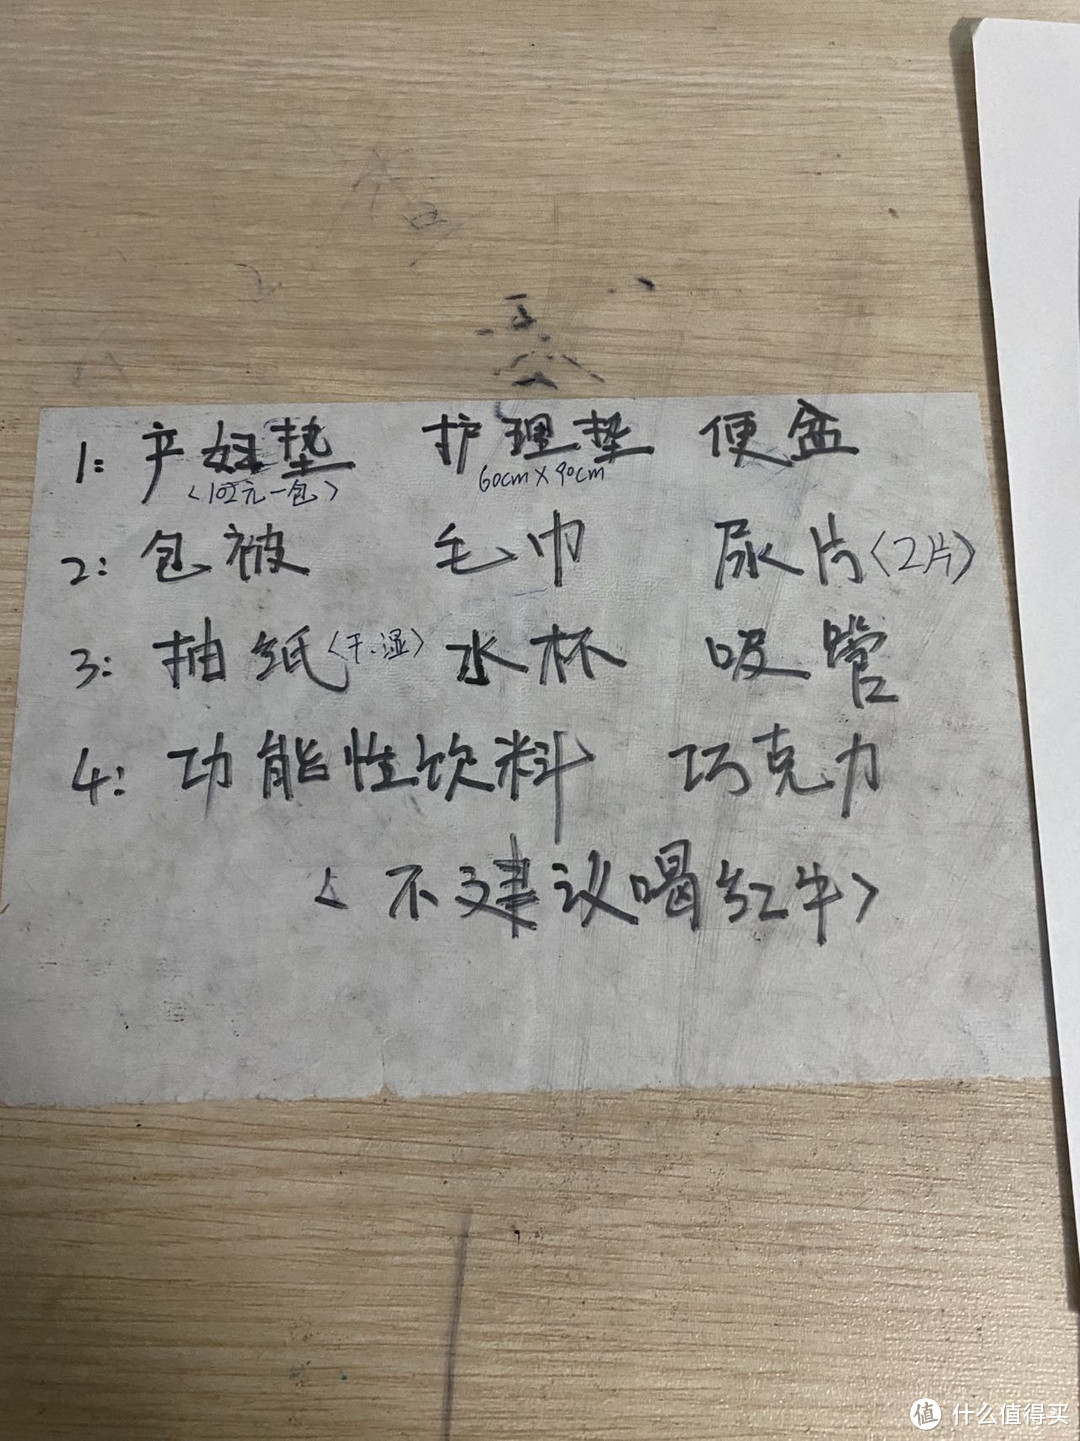 1: 产妇垫 护理垫 便盆
<102元一包> 60cm×90cm
2: 包被 毛巾 尿片<2片>
3: 抽纸<干、湿> 水杯 吸管
4: 功能性饮料 巧克力
<不建议喝红牛>
值 什么值得买